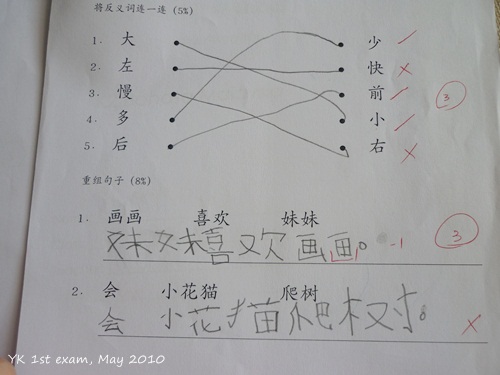 将反义词连一连 (5%)
1. 大 少
2. 左 快
3. 慢 前 3
4. 多 小
5. 后 右
重组句子 (8%)
1. 画画 喜欢 妹妹
妹妹喜欢画画。 -1 3
2. 会 小花猫 爬树
会 小花猫爬树。
YK 1st exam, May 2010